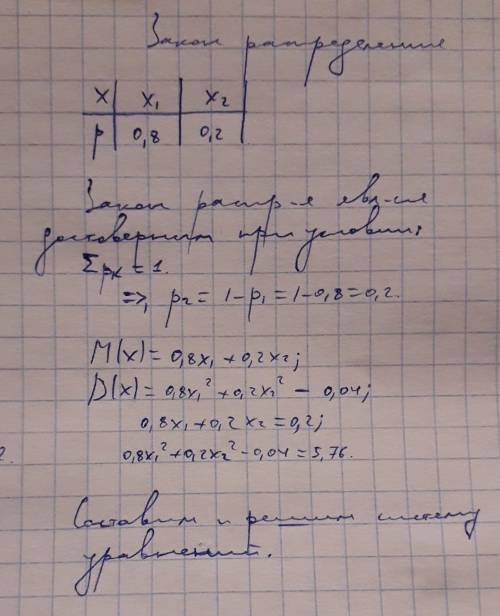 Закон распределения
X | x₁ | x₂
p | 0,8 | 0,2
Закон распр-я явл-ся
достоверным при условии:
Σpк = 1.
=>, p₂ = 1 - p₁ = 1 - 0,8 = 0,2.
M(x) = 0,8x₁ + 0,2x₂;
D(x) = 0,8x₁² + 0,2x₂² - 0,04;
0,8x₁ + 0,2x₂ = 0,2;
0,8x₁² + 0,2x₂² - 0,04 = 5,76.
Составим и решим систему
уравнений.